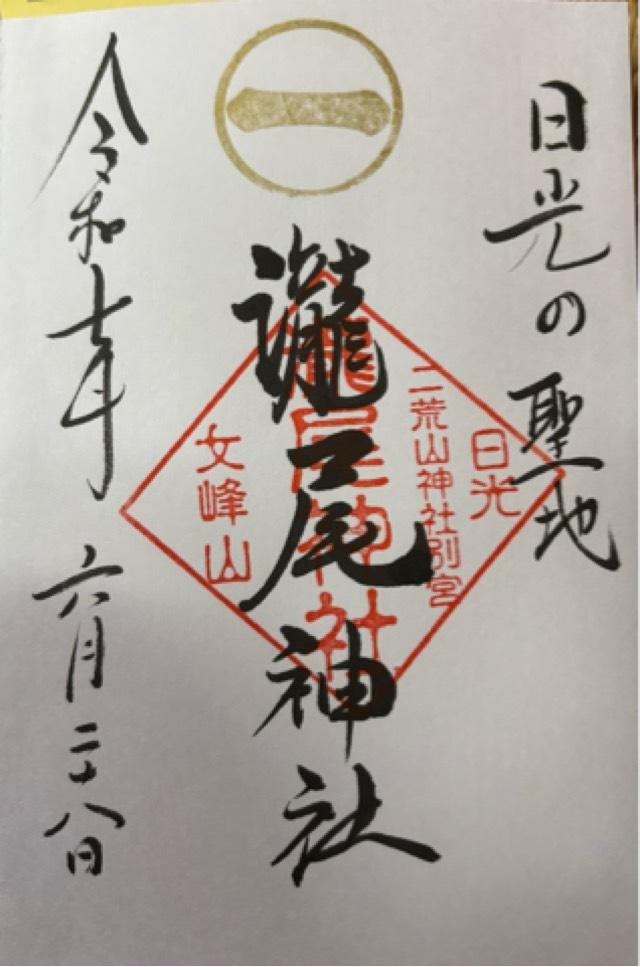 日光の聖地
一
瀧尾神社
日光
二荒山神社別宮
瀧尾神社
女峰山
令和七年 六月二十八日